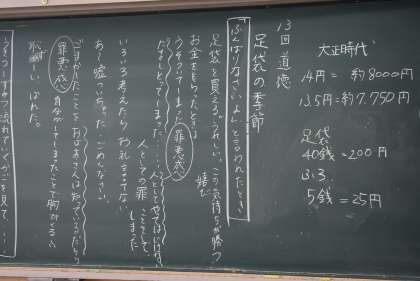 13回 道徳
足袋の季節
「ふんばりなさいよ」と言われたとき
足袋を買える。うれしい。この気持ちが勝つ
お金をもらったとき
うそついてしまった 罪悪感
だましとってしまった… 人としてやってはいけない
人としての罪 ことをして しまった
いろいろ考えたら お礼言えてない
あー嘘ついちゃった、ごめんなさい。
ごまかしたことを おばあさんは知っているだろう
罪悪感 自分がしてしまったことで胸がくるしい
恥ずかしい ばれた。
大正時代
14円 = 約8000円
13.5円=約7,750円
足袋
40銭=200円
ふろ
5銭=25円